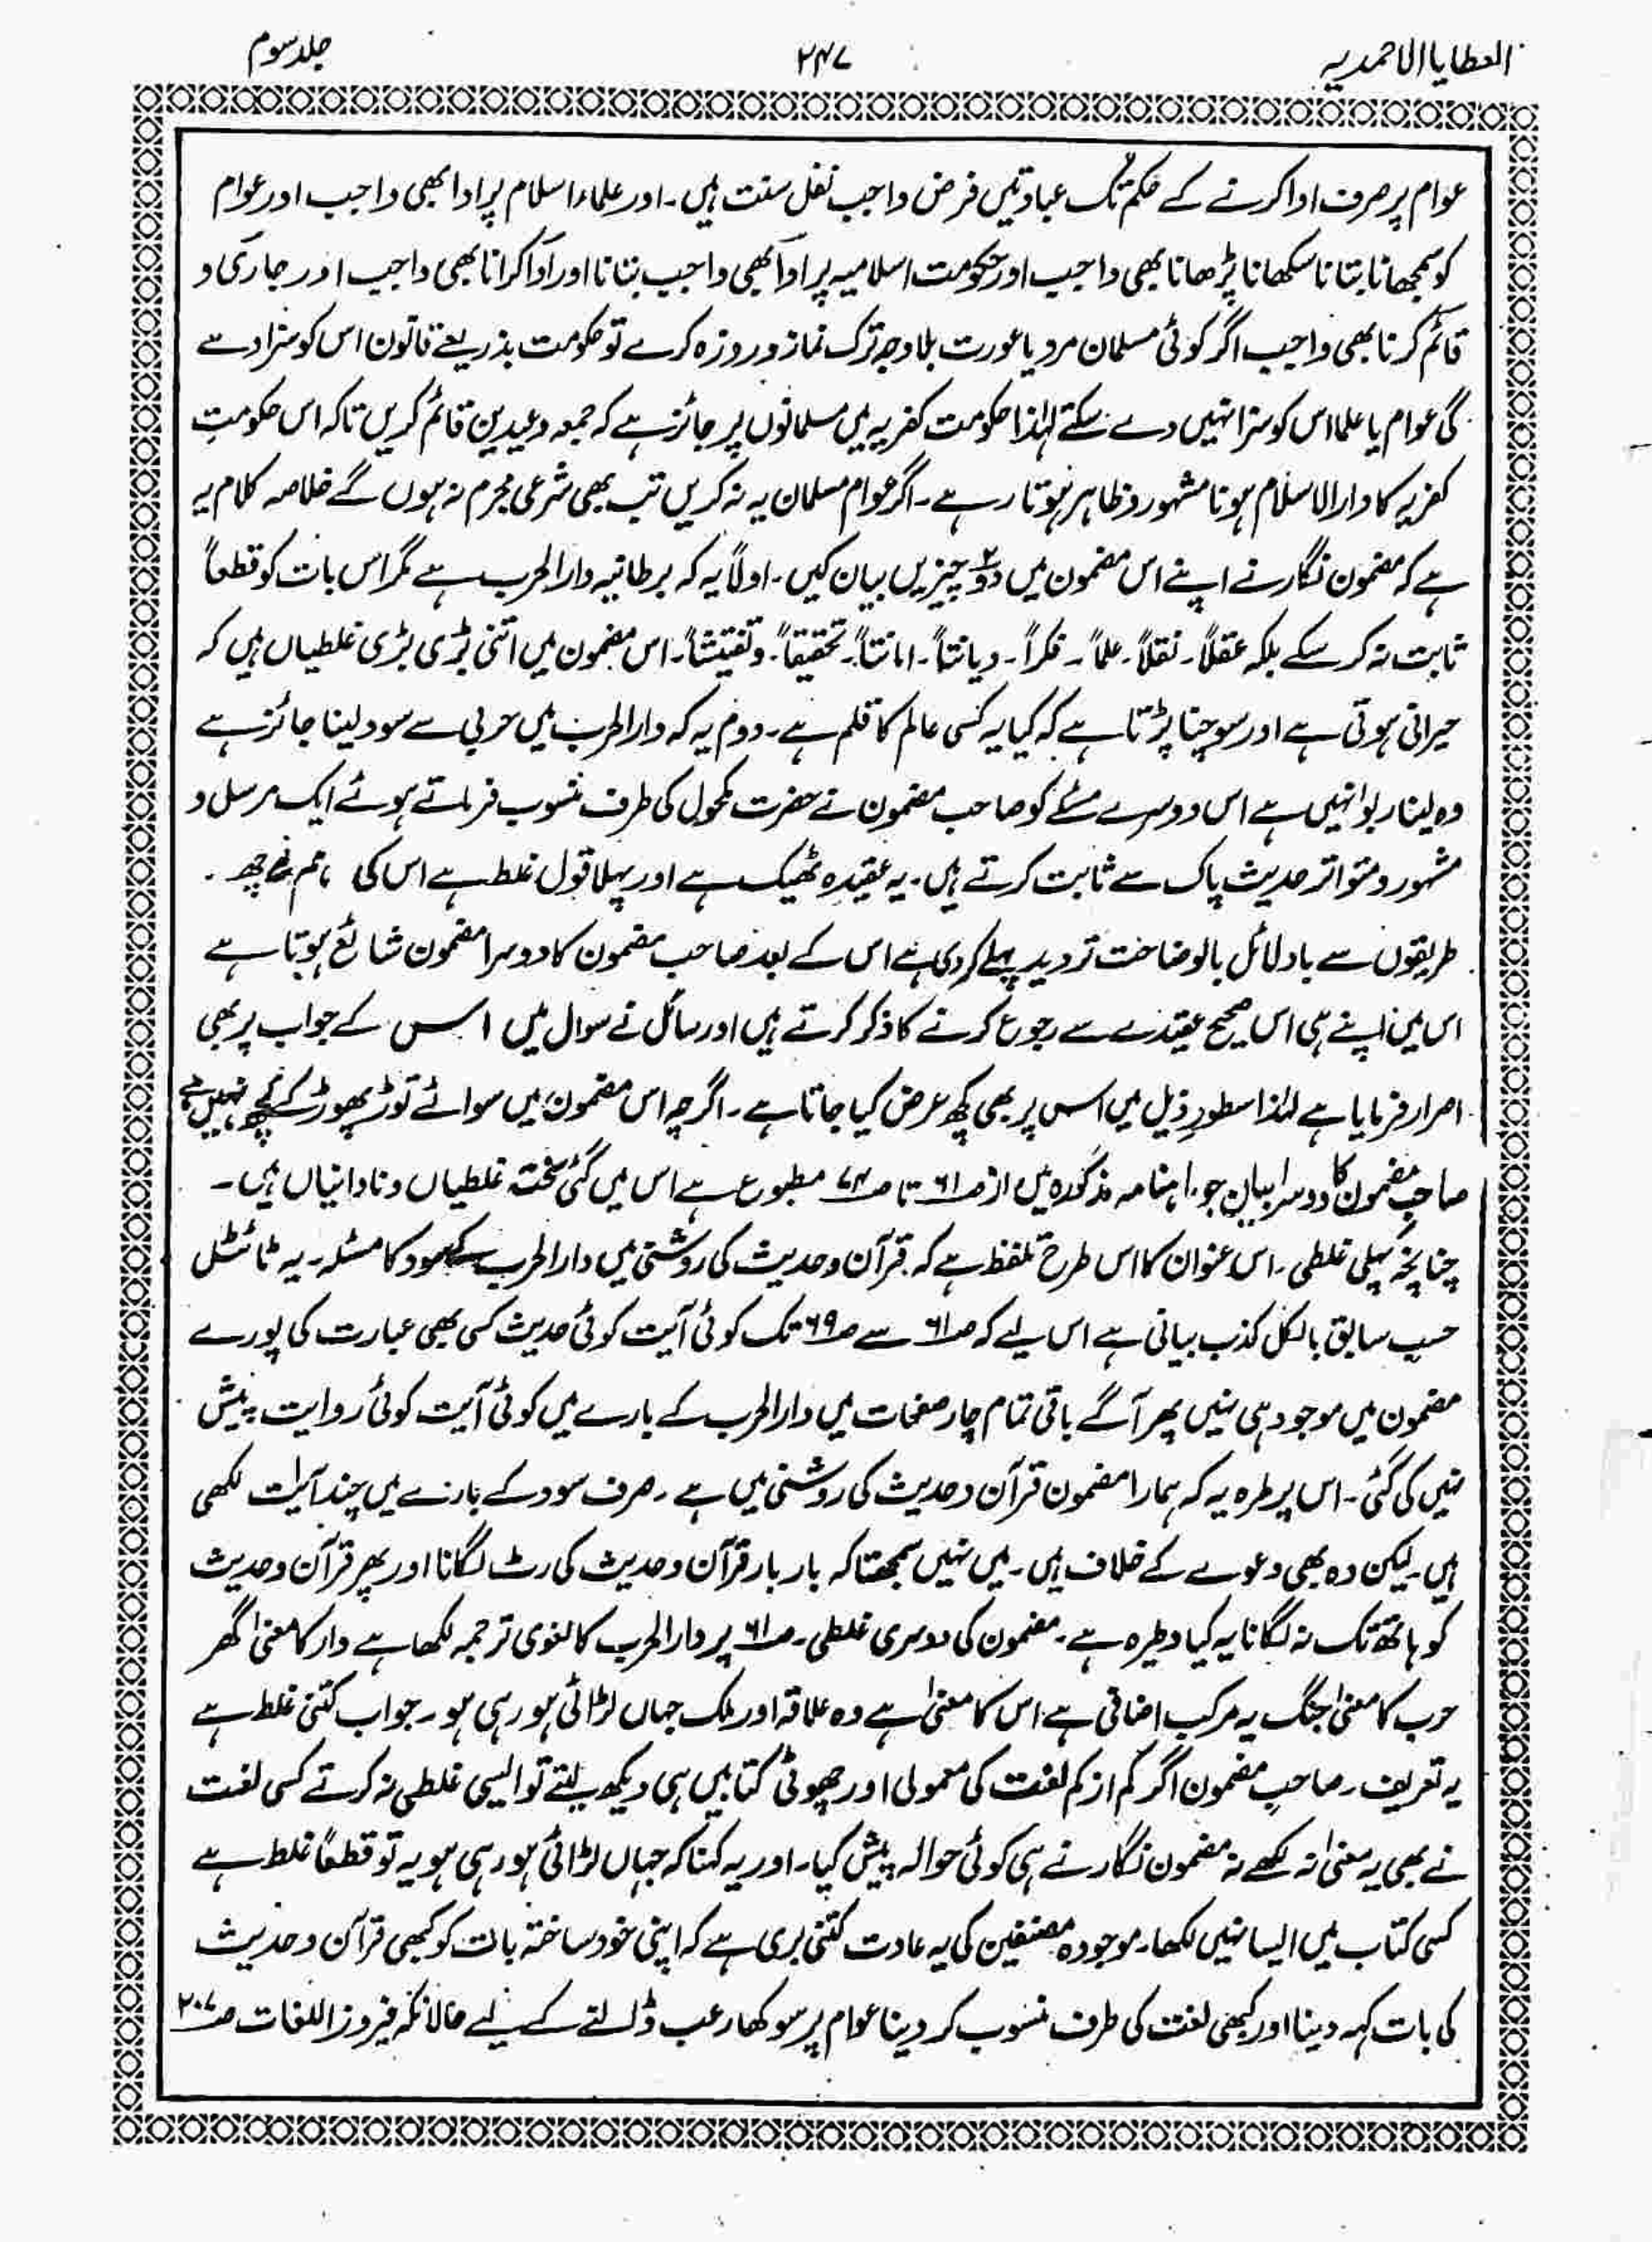 العطایا الاحمدیہ ۲۴۷ جلد سوم
عوام پر صرف ادا کرنے کے حکم تک عبادتیں فرض واجب نفل سنت ہیں۔ اور علماء اسلام پر ادا بھی واجب اور عوام
کو سمجھانا بتانا سکھانا پڑھانا بھی واجب اور حکومت اسلامیہ پر ادا بھی واجب بتانا اور ادا کرانا بھی واجب اور جاری و
قائم کرنا بھی واجب اگر کوئی مسلمان مرد یا عورت بلا وجہ ترک نماز و روزہ کرے تو حکومت بذریعے قانون اس کو سزا دے
گی عوام یا علما اس کو سزا نہیں دے سکتے لہٰذا حکومت کفریہ میں مسلمانوں پر جائز ہے کہ جمعہ و عیدین قائم کریں تاکہ اس حکومتِ
کفریہ کا دار الاسلام ہونا مشہور و ظاہر ہوتا رہے۔ اگر عوام مسلمان یہ نہ کریں تب بھی شرعی مجرم نہ ہوں گے خلاصہ کلام یہ
ہے کہ مضمون نگار نے اپنے اس مضمون میں دو۲ چیزیں بیان کیں۔ اولاً یہ کہ برطانیہ دار الحرب ہے مگر اس بات کو قطعاً
ثابت نہ کر سکے بلکہ عقلاً۔ نقلاً۔ علماً۔ فکراً۔ دیانتاً۔ امانتاً۔ تحقیقاً۔ و تفتیشاً۔ اس مضمون میں اتنی بڑی بڑی غلطیاں ہیں کہ
حیرانی ہوتی ہے اور سوچنا پڑتا ہے کہ کیا یہ کسی عالم کا قلم ہے۔ دوم یہ کہ دار الحرب میں حربی سے سود لینا جائز ہے
وہ لینا ربوا نہیں ہے اس دوسرے مسئلے کو صاحب مضمون نے حضرت مکحول کی طرف منسوب فرماتے ہوئے ایک مرسل و
مشہور و متواتر حدیث پاک سے ثابت کرتے ہیں۔ یہ عقیدہ ٹھیک ہے اور پہلا قول غلط ہے اس کی
طریقوں سے با دلائل بالوضاحت تردید پہلے کر دی ہے اس کے بعد صاحب مضمون کا دوسرا مضمون شائع ہوتا ہے
اس میں اپنے ہی اس صحیح عقیدے سے رجوع کرنے کا ذکر کرتے ہیں اور سائل نے سوال میں اس کے جواب پر بھی
اصرار فرمایا ہے لہٰذا سطورِ ذیل میں اس پر بھی کچھ عرض کیا جاتا ہے۔ اگرچہ اس مضمون میں سوائے توڑ پھوڑ کے کچھ نہیں ہے
صاحبِ مضمون کا دوسرا بیان جو ماہنامہ مذکورہ میں از صـ۶۱ تا صـ۷۴ مطبوع ہے اس میں کئی سخت غلطیاں و نادانیاں ہیں۔
چنانچہ پہلی غلطی۔ اس عنوان کا اس طرح تلفظ ہے کہ قرآن و حدیث کی روشنی میں دار الحرب کے سود کا مسئلہ۔ یہ ٹائٹل
حسبِ سابق بالکل کذب بیانی ہے اس لیے کہ صـ۶۱ سے صـ۶۹ تک کوئی آیت کوئی حدیث کسی بھی عبارت کی پورے
مضمون میں موجود ہی نہیں پھر آگے باقی تمام چار صفحات میں دار الحرب کے بارے میں کوئی آیت کوئی روایت پیش
نہیں کی گئی۔ اس پر طرہ یہ کہ ہمارا مضمون قرآن و حدیث کی روشنی میں ہے۔ صرف سود کے بارے میں چند آیات لکھی
ہیں۔ لیکن وہ بھی دعوے کے خلاف ہیں۔ میں نہیں سمجھتا کہ بار بار قرآن و حدیث کی رٹ لگانا اور پھر قرآن و حدیث
کو ہاتھ تک نہ لگانا یہ کیا وطیرہ ہے۔ مضمون کی دوسری غلطی۔ صـ۶۱ پر دار الحرب کا لغوی ترجمہ لکھا ہے دار کا معنیٰ گھر
حرب کا معنیٰ جنگ یہ مرکب اضافی ہے اس کا معنیٰ ہے وہ علاقہ اور ملک جہاں لڑائی ہو رہی ہو۔ جواب کتنی غلط ہے
یہ تعریف۔ صاحبِ مضمون اگر کم از کم لغت کی معمولی اور چھوٹی کتابیں ہی دیکھ لیتے تو ایسی غلطی نہ کرتے کسی لغت
نے بھی یہ معنیٰ نہ لکھے نہ مضمون نگار نے ہی کوئی حوالہ پیش کیا۔ اور یہ کہنا کہ جہاں لڑائی ہو رہی ہو یہ تو قطعاً غلط ہے
کسی کتاب میں ایسا نہیں لکھا۔ موجودہ مصنفین کی یہ عادت کتنی بری ہے کہ اپنی خود ساختہ بات کو کبھی قرآن و حدیث
کی بات کہہ دینا اور کبھی لغت کی طرف منسوب کر دینا عوام پر سوکھا رعب ڈالنے کے لیے حالانکہ فیروز اللغات صـ۲۰۷